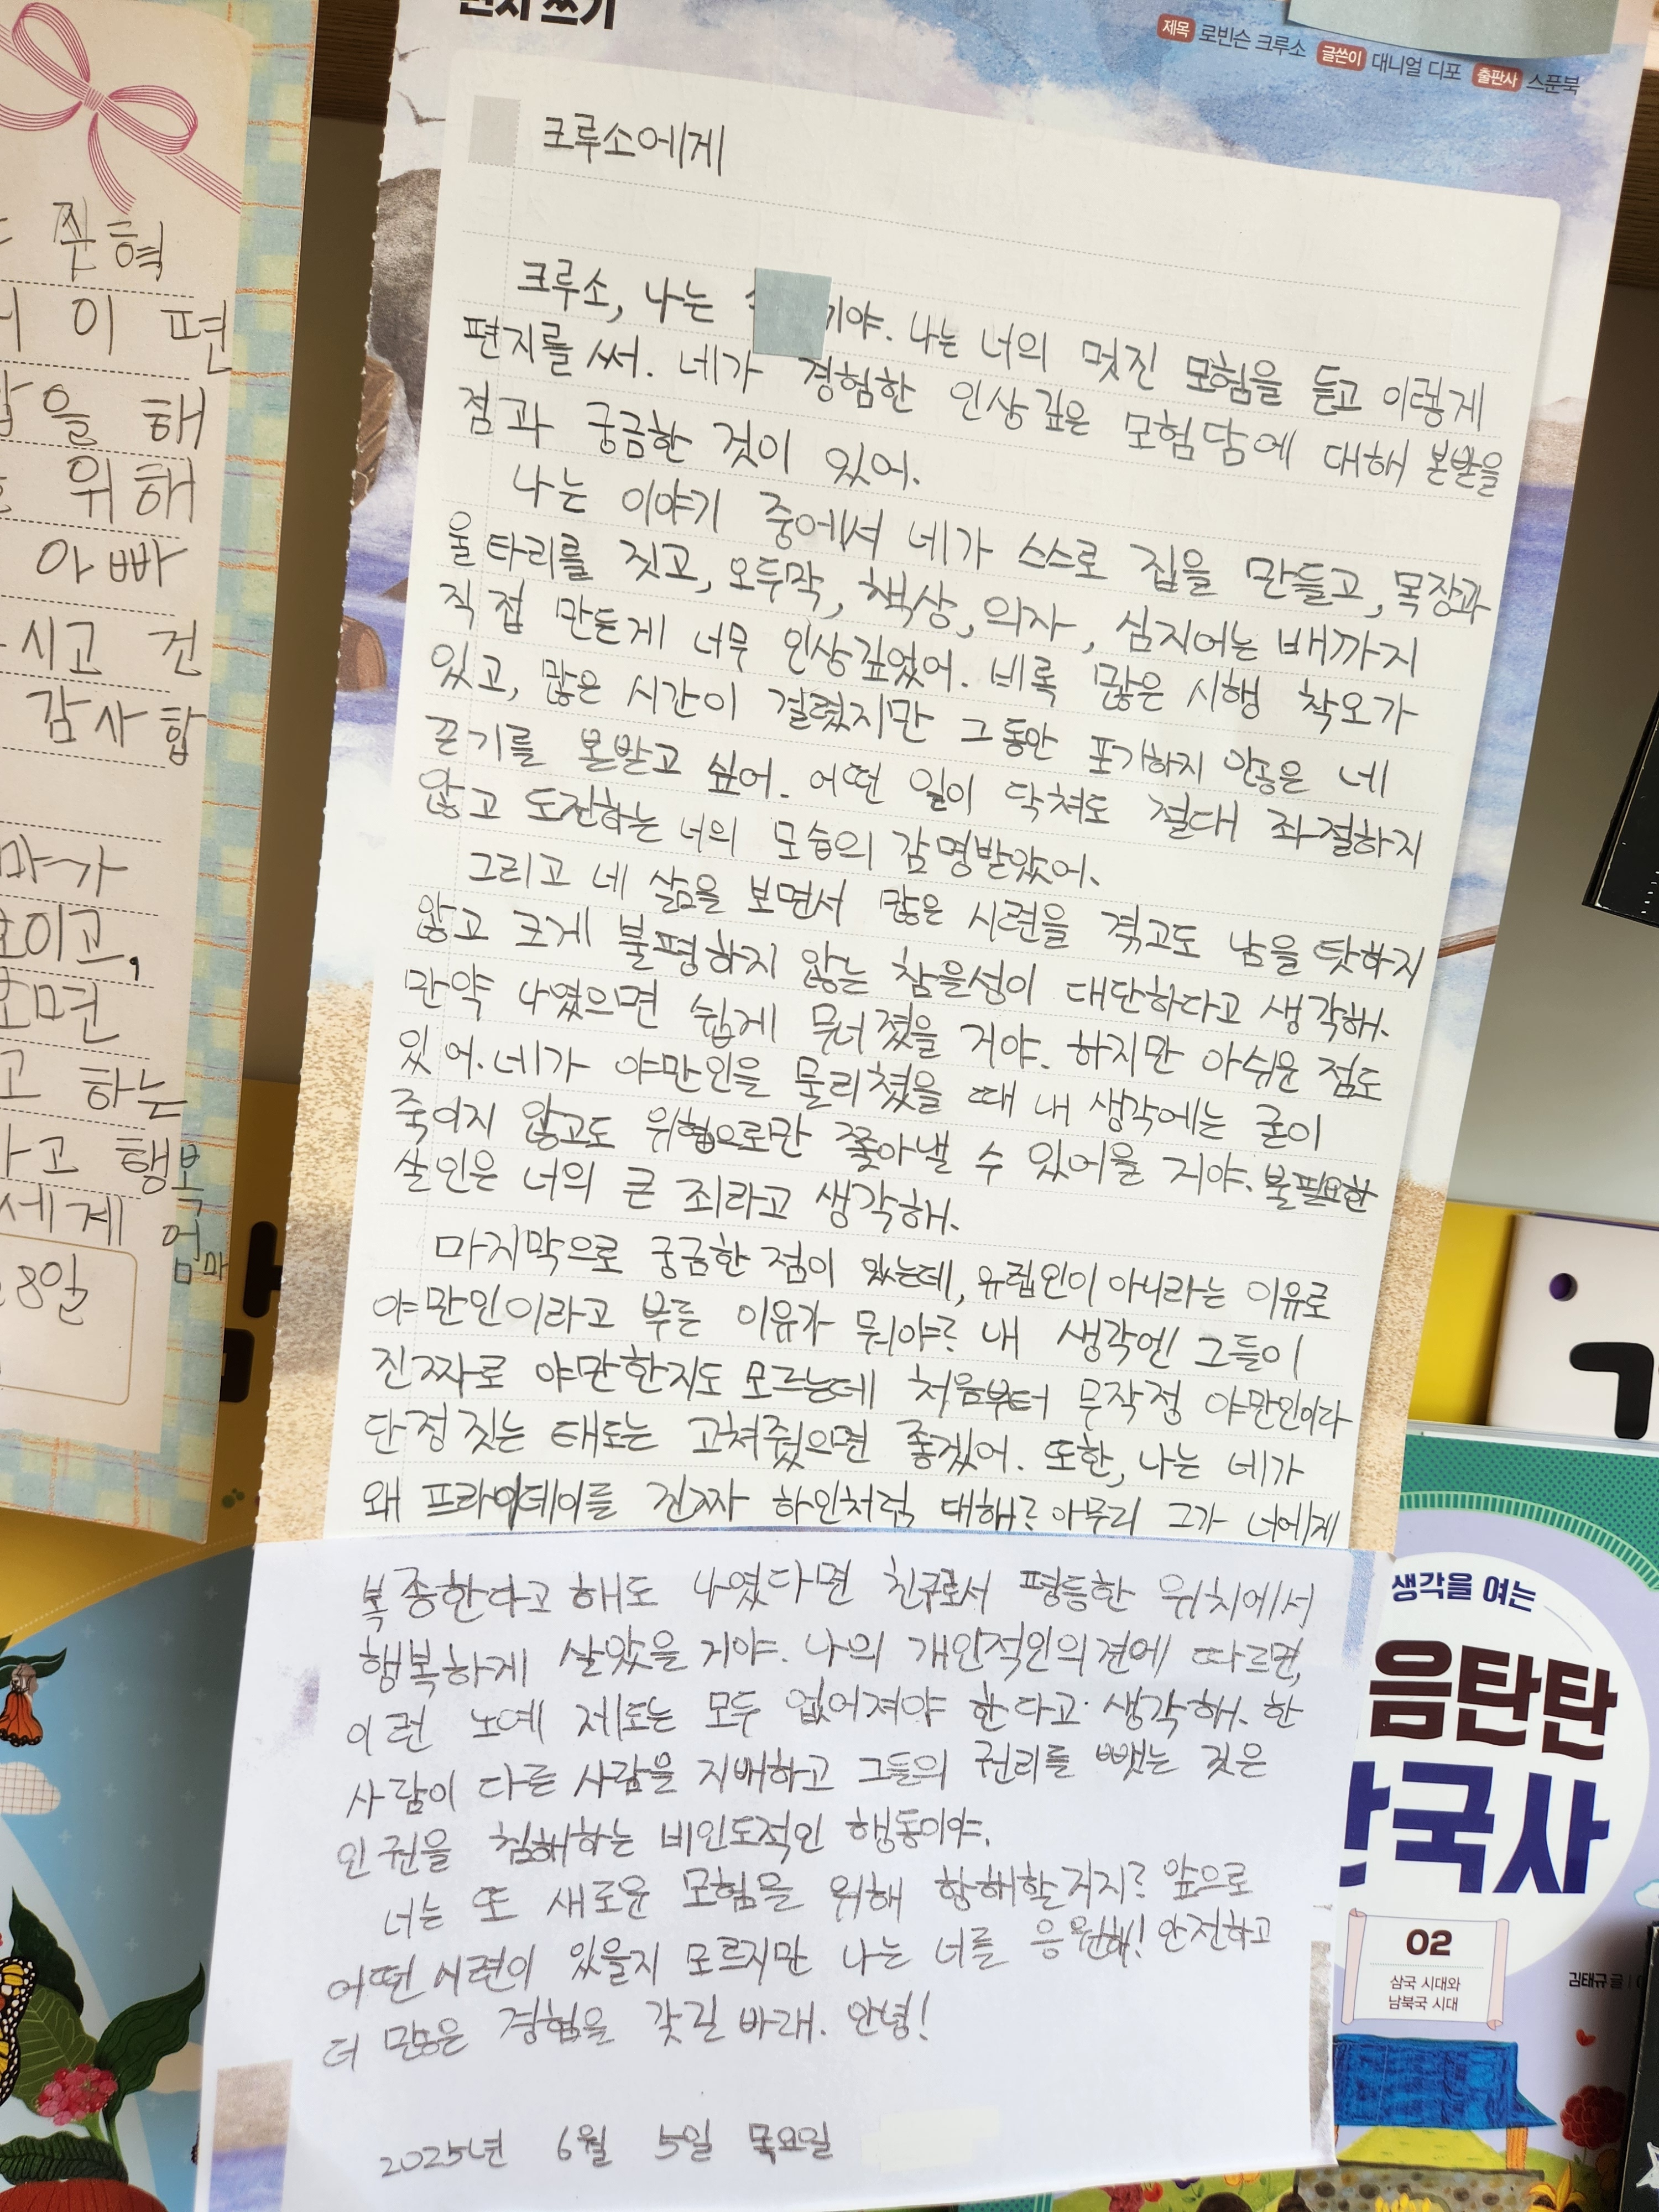 편지 쓰기
제목 로빈슨 크루소 글쓴이 대니얼 디포 출판사 스푼북
크루소에게
크루소, 나는 기야. 나는 너의 멋진 모험을 듣고 이렇게
편지를 써. 네가 경험한 인상깊은 모험담에 대해 본받을
점과 궁금한 것이 있어.
나는 이야기 중에서 네가 스스로 집을 만들고, 목장과
울타리를 짓고, 오두막, 책상, 의자, 심지어는 배까지
직접 만든게 너무 인상깊었어. 비록 많은 시행 착오가
있고, 많은 시간이 걸렸지만 그동안 포기하지 않은 네
끈기를 본받고 싶어. 어떤 일이 닥쳐도 절대 좌절하지
않고 도전하는 너의 모습의 감명받았어.
그리고 네 삶을 보면서 많은 시련을 겪고도 남을 탓하지
않고 크게 불평하지 않는 참을성이 대단하다고 생각해.
만약 나였으면 쉽게 무너졌을 거야. 하지만 아쉬운 점도
있어. 네가 야만인을 물리쳤을 때 내 생각에는 굳이
죽이지 않고도 위협으로만 쫓아낼 수 있어을 거야. 불필요한
살인은 너의 큰 죄라고 생각해.
마지막으로 궁금한 점이 있는데, 유럽인이 아니라는 이유로
야만인이라고 부른 이유가 뭐야? 내 생각엔 그들이
진짜로 야만한지도 모르는데 처음부터 무작정 야만인이라
단정 짓는 태도는 고쳐줬으면 좋겠어. 또한, 나는 네가
왜 프라이데이를 진짜 하인처럼 대해? 아무리 그가 너에게
복종한다고 해도 나였다면 친구로서 평등한 위치에서
행복하게 살았을 거야. 나의 개인적인의견에 따르면,
이런 노예 제도는 모두 없어져야 한다고 생각해. 한
사람이 다른 사람을 지배하고 그들의 권리를 뺏는 것은
인권을 침해하는 비인도적인 행동이야.
너는 또 새로운 모험을 위해 항해할거지? 앞으로
어떤 시련이 있을지 모르지만 나는 너를 응원해! 안전하고
더 많은 경험을 갖길 바래. 안녕!
2025년 6월 5일 목요일
준혁
이 편
을 해
위해
아빠
시고 건
감사합
마가
보이고,
하는
고 행복
세계 엄마
8일
생각을 여는
음탄탄
한국사
02
삼국 시대와
남북국 시대
김태규 글